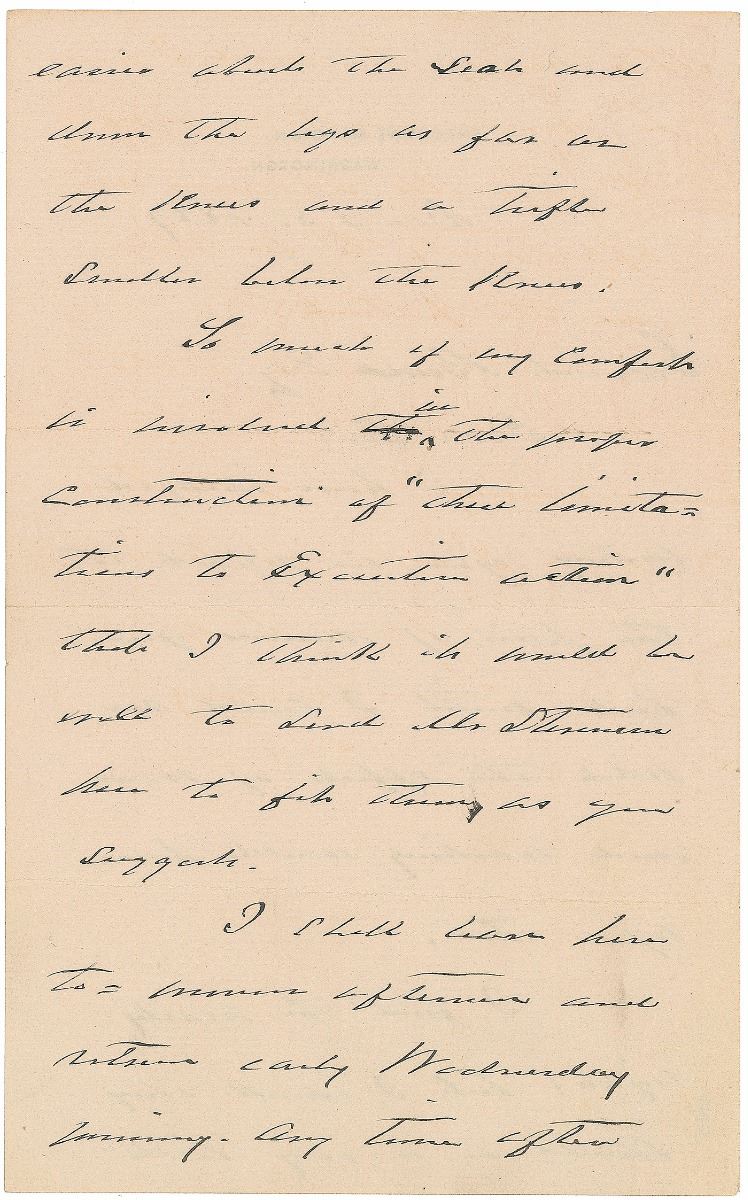 easier about the seat and
down the legs as far as
the Knees and a trifle
smaller below the Knees.
So much of my Comfort
is involved in the proper
Construction of "these limita=
tions to Executive action"
that I think it would be
well to send Mr Stevenson
here to fit them, as you
suggest.
I shall leave here
to=morrow afternoon and
return early Wednesday
morning. Any time after